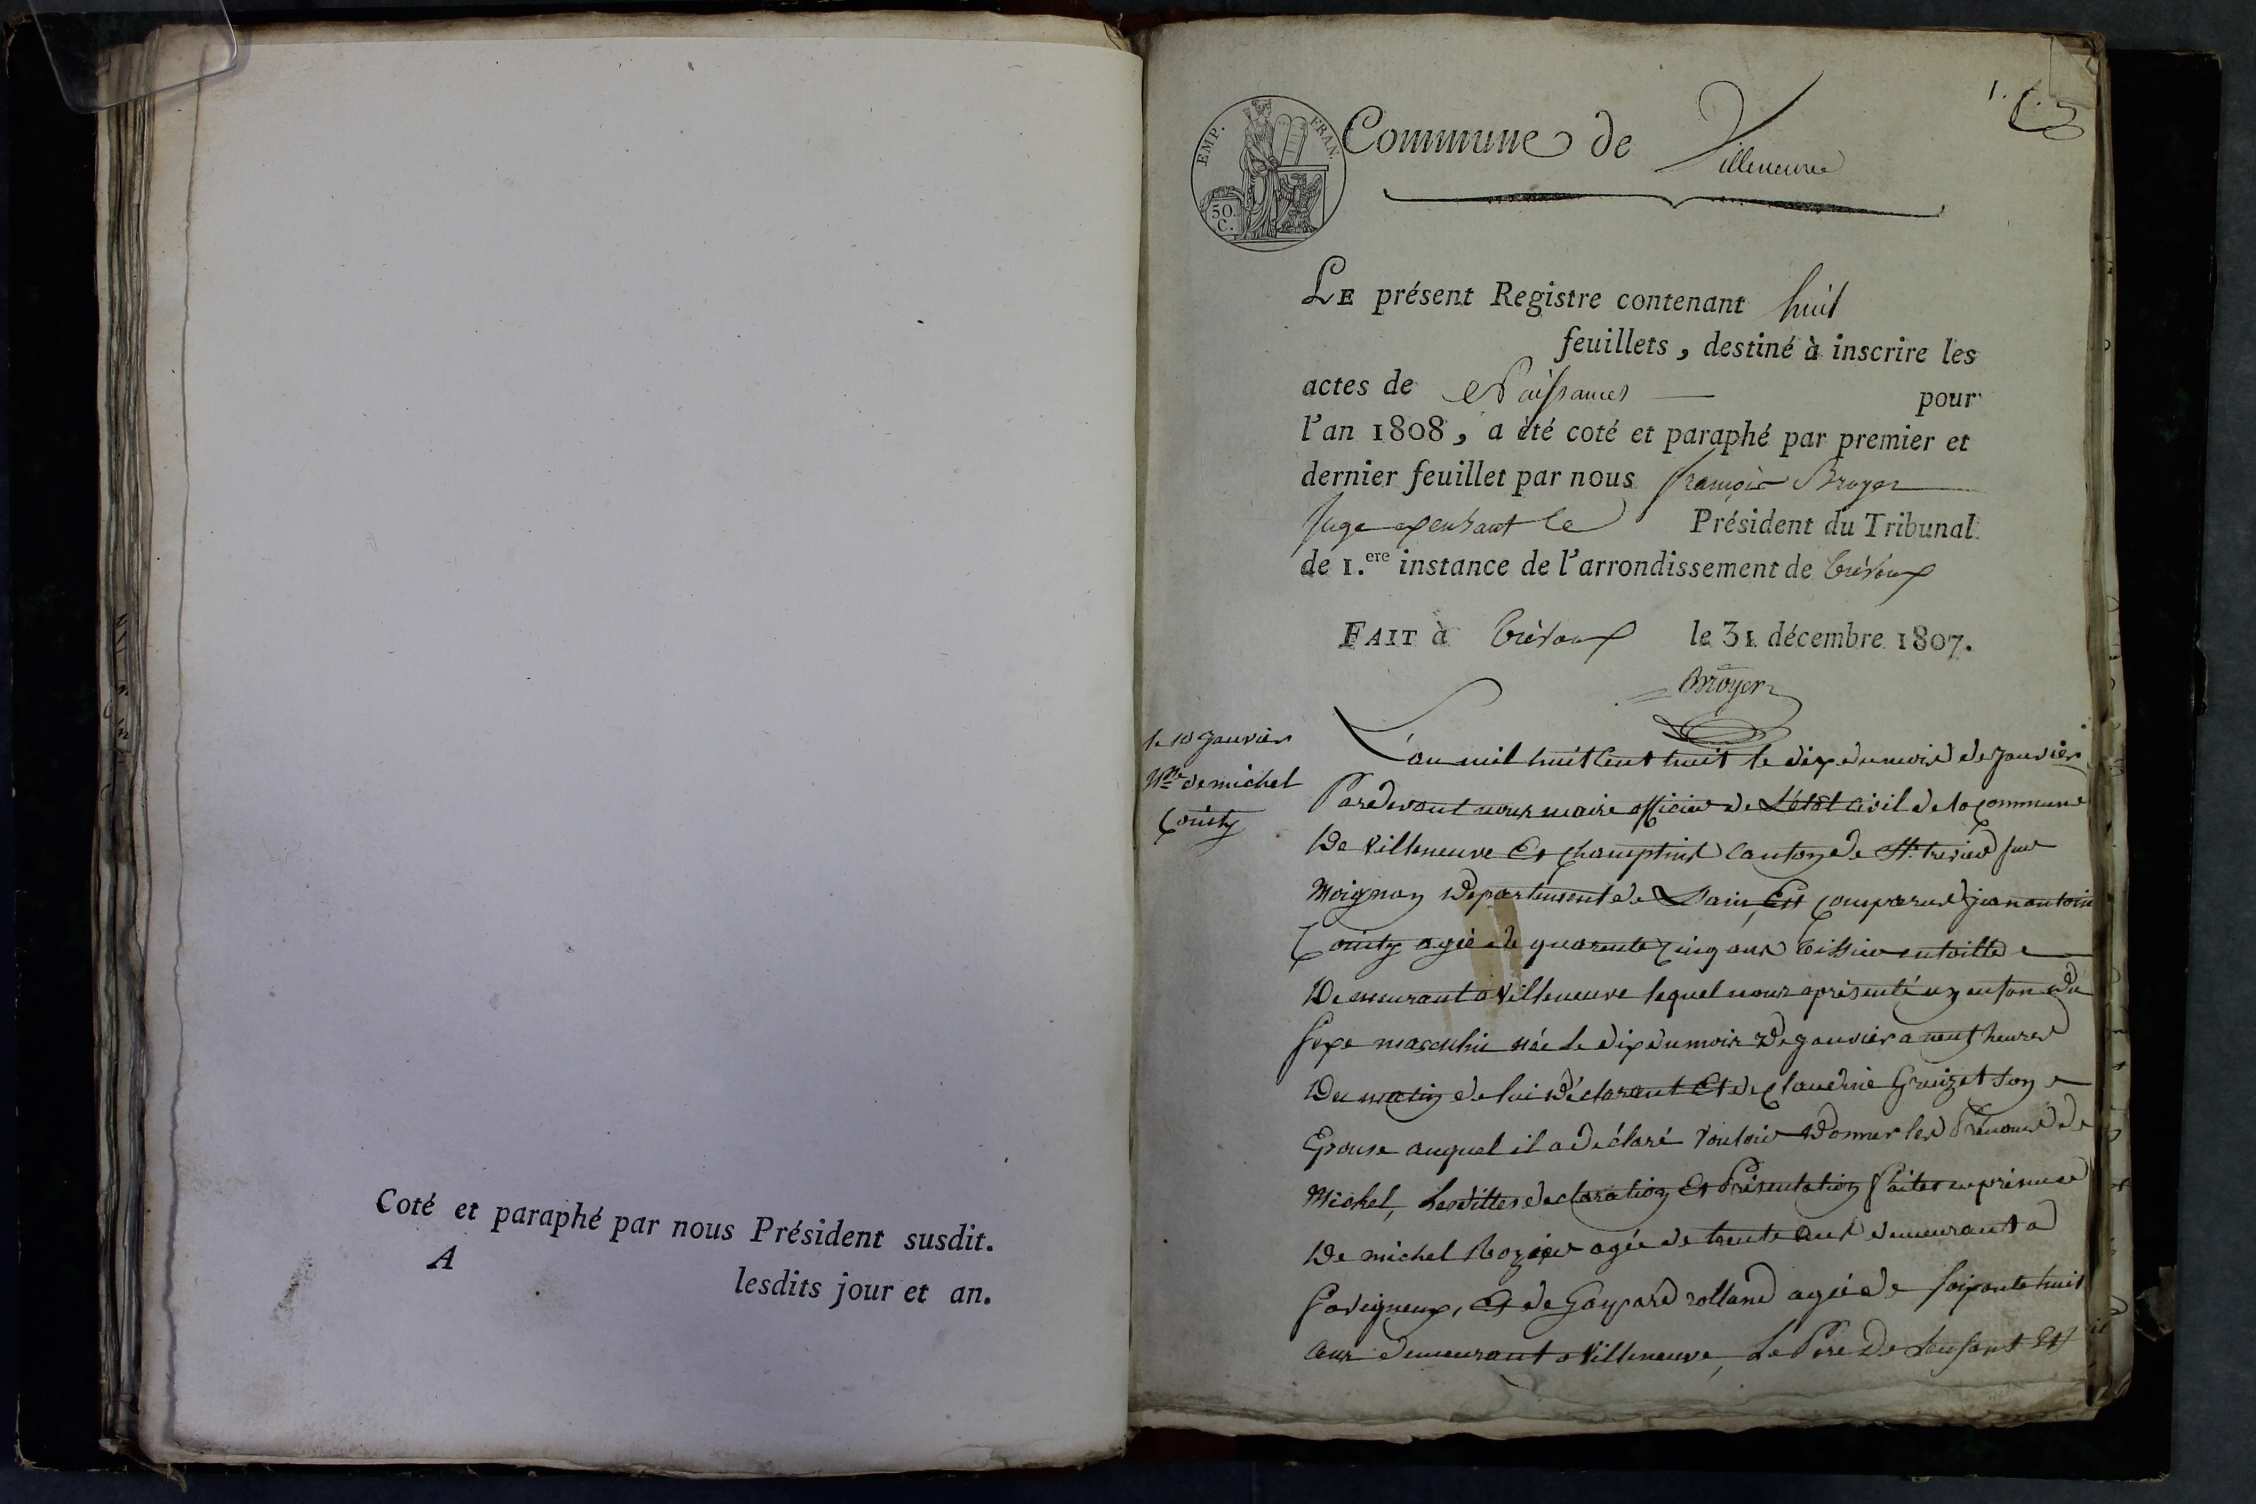 Coté et paraphé par nous Président susdit.
A
lesdits jour et an.
1.
EMP. FRAN.
50.
C.
Commune de Villeneuve
LE présent Registre contenant huit
feuillets, destiné à inscrire les
actes de Naissances pour
l'an 1808, a été coté et paraphé par premier et
dernier feuillet par nous françois Broyer
Juge Président du Tribunal
de 1.ere instance de l'arrondissement de trévoux
FAIT à trévoux le 31 décembre 1807.
Broyer
le 10 janvier
Nce de michel
L'an mil huit cent huit le dix du mois de janvier
Pardevant nous maire officier de L'état civil de la commune
De Villeneuve Et champteins Canton de St. trivier sur
Moignan Département de Lain, Est comparu jean antoine
agée de quarante cinq ans tissier en toille
Demeurant a Villeneuve lequel nous a présenté un enfan du
sexe masculin née le dix du mois de janvier a neuf heures
Du matin de lui Déclarant Et de claudine Greuzet son
Epouse auquel il a déclaré vouloir Donner les Prénoms de
Michel, Lesdittes declaration Et Présentation faites en présence
De michel Rozier agée de trente ans demeurant a
Savigneux, Et de Gaspard rolland agée de soixante huit
ans demeurant a Villeneuve, Le Père De Lenfant Et